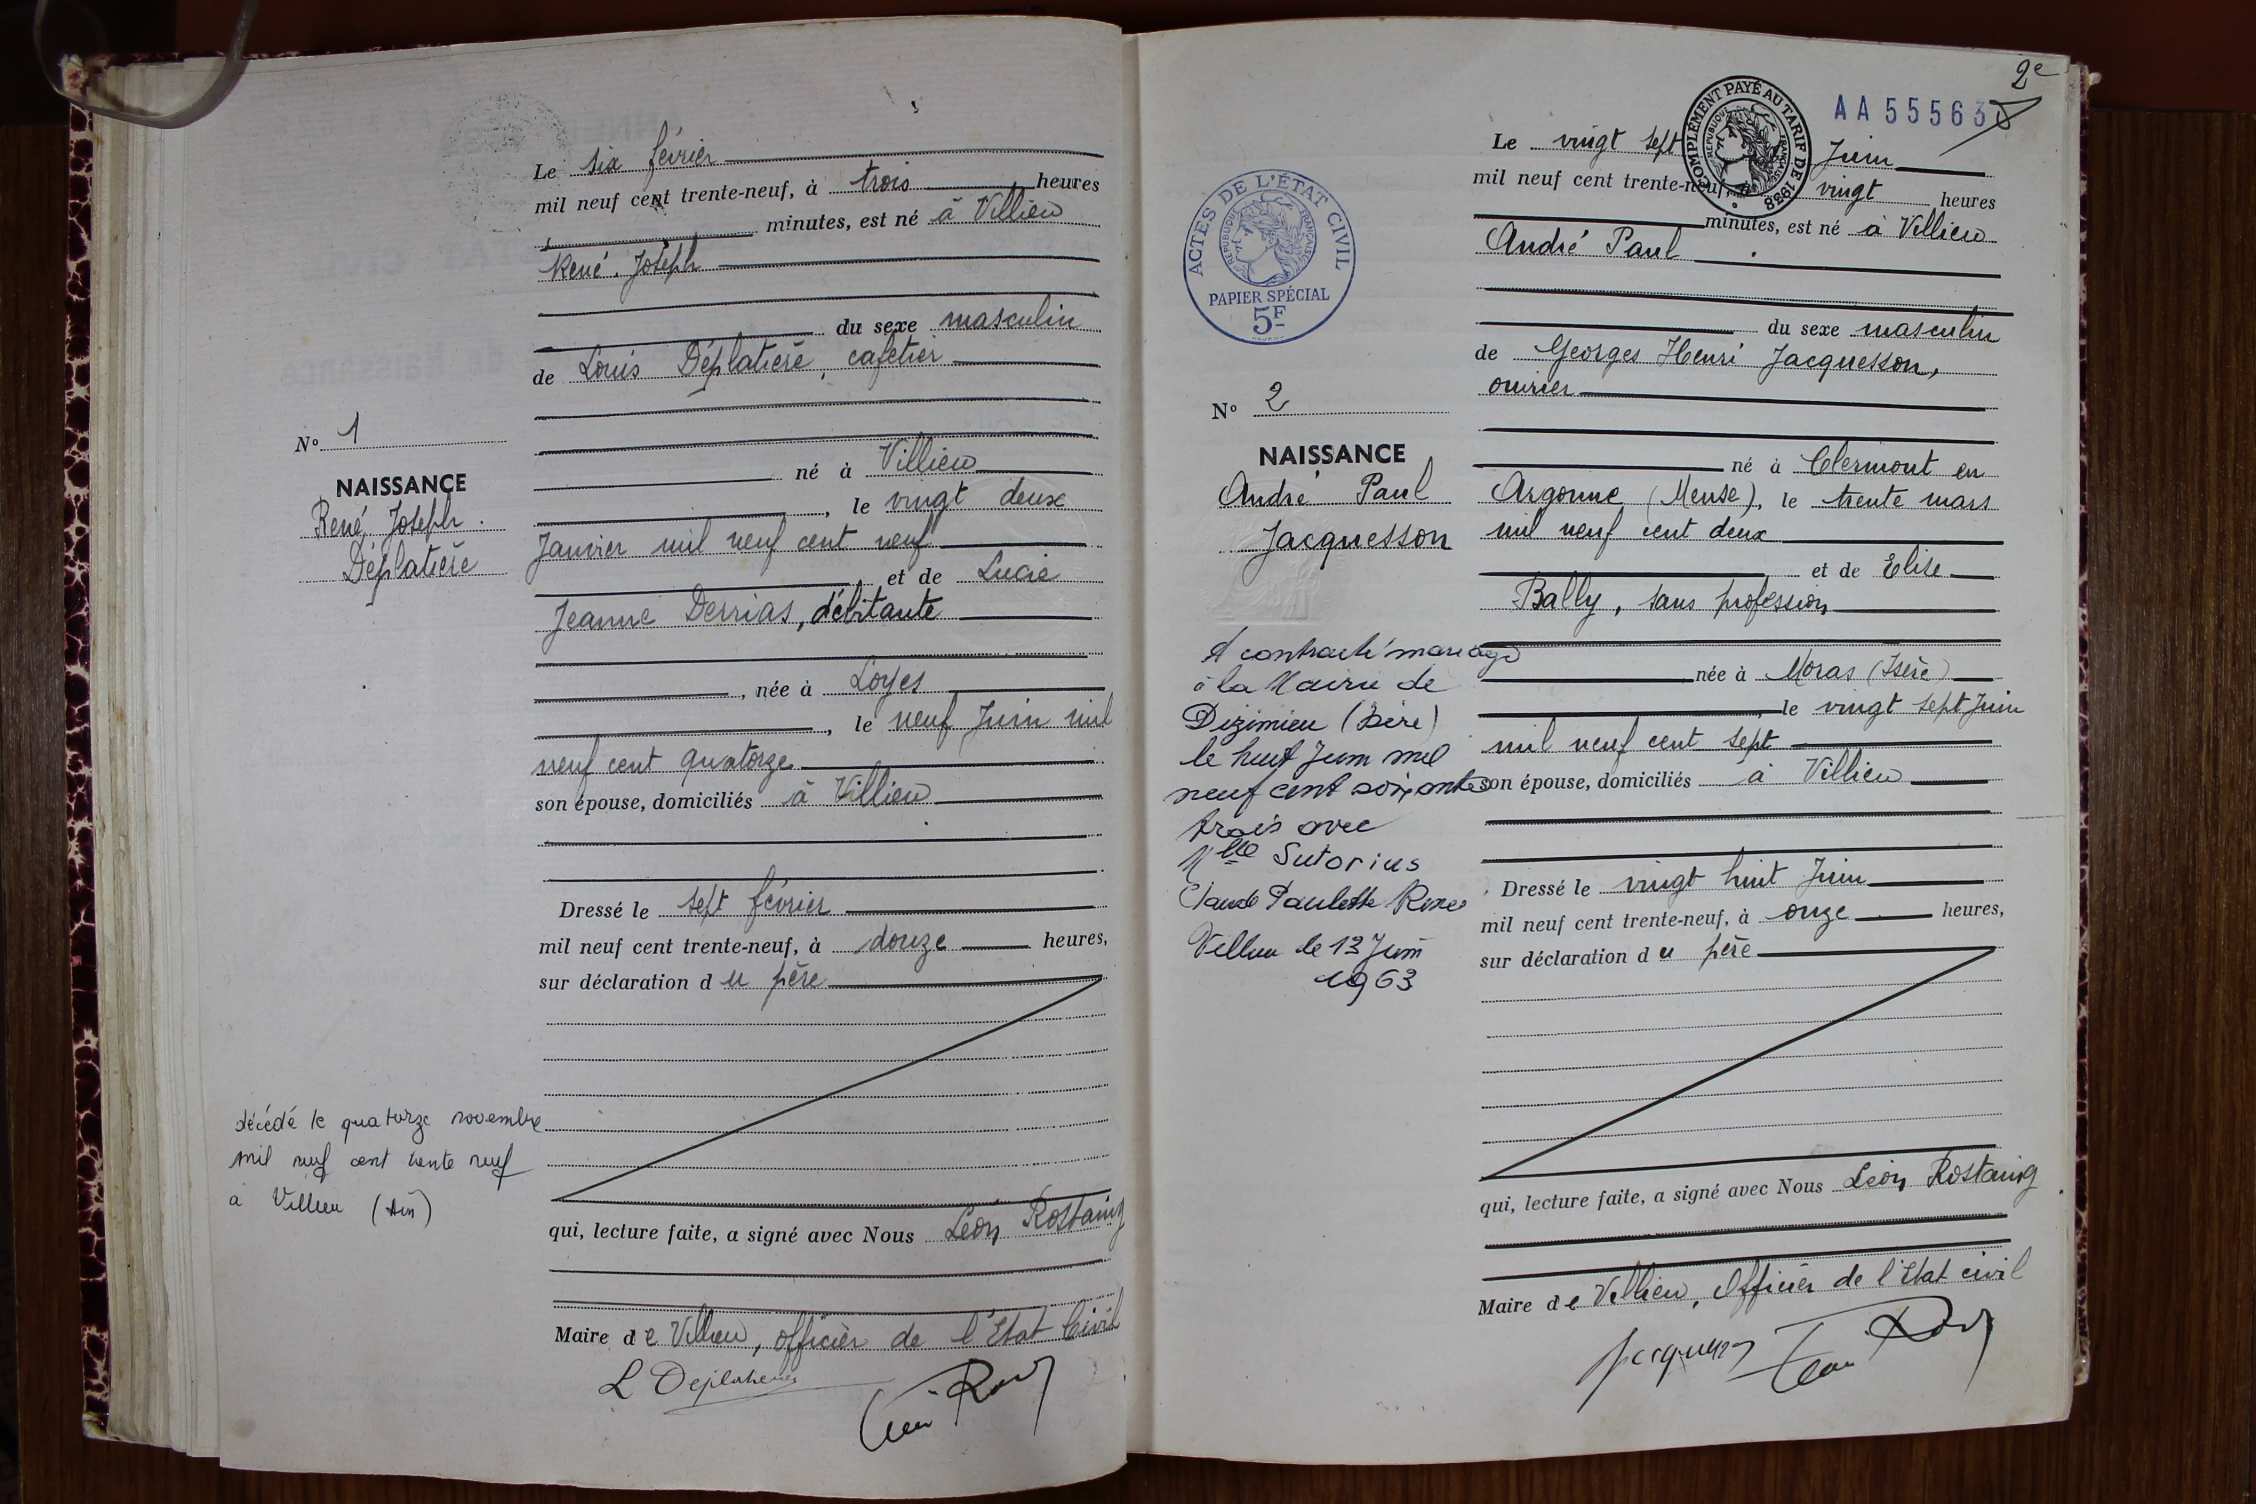 Le six février
mil neuf cent trente-neuf, à trois heures
minutes, est né à Villieu
René, Joseph
du sexe masculin
de Louis Déplatière, cafetier
N° 1
NAISSANCE
René, Joseph.
Déplatière
né à Villieu
, le vingt deux
Janvier mil neuf cent neuf
et de Lucie
Jeanne Derrias, débitante
, née à Loyes
, le neuf Juin mil
neuf cent quatorze
son épouse, domiciliés à Villieu
Dressé le sept février
mil neuf cent trente-neuf, à douze heures,
sur déclaration du père
décédé le quatorze novembre
mil neuf cent trente neuf
à Villieu (Ain)
qui, lecture faite, a signé avec Nous Léon Rostaing
Maire de Villieu, officier de l'Etat Civil
L Déplatière
2e
AA 55563
COMPLÉMENT PAYÉ AU TARIF DE 1938
RÉPUBLIQUE FRANÇAISE
ACTES DE L'ÉTAT CIVIL
RÉPUBLIQUE FRANÇAISE
PAPIER SPÉCIAL
5F
Le vingt sept Juin
mil neuf cent trente-neuf, vingt heures
minutes, est né à Villieu
André Paul
du sexe masculin
de Georges Henri Jacquesson,
ouvrier
N° 2
NAISSANCE
André Paul
Jacquesson
né à Clermont en
Argonne (Meuse), le trente mars
mil neuf cent deux
et de Elise
Bally, sans profession
née à Moras (Isère)
, le vingt sept Juin
mil neuf cent sept
son épouse, domiciliés à Villieu
A contracté mariage
à la Mairie de
Dizimieu (Isère)
le huit Juin mil
neuf cent soixante
trois avec
Mlle Sutorius
Claude Paulette
Villieu le 13 Juin
1963
Dressé le vingt huit Juin
mil neuf cent trente-neuf, à onze heures,
sur déclaration du père
qui, lecture faite, a signé avec Nous Léon Rostaing
Maire de Villieu, Officier de l'Etat civil
Jacquesson